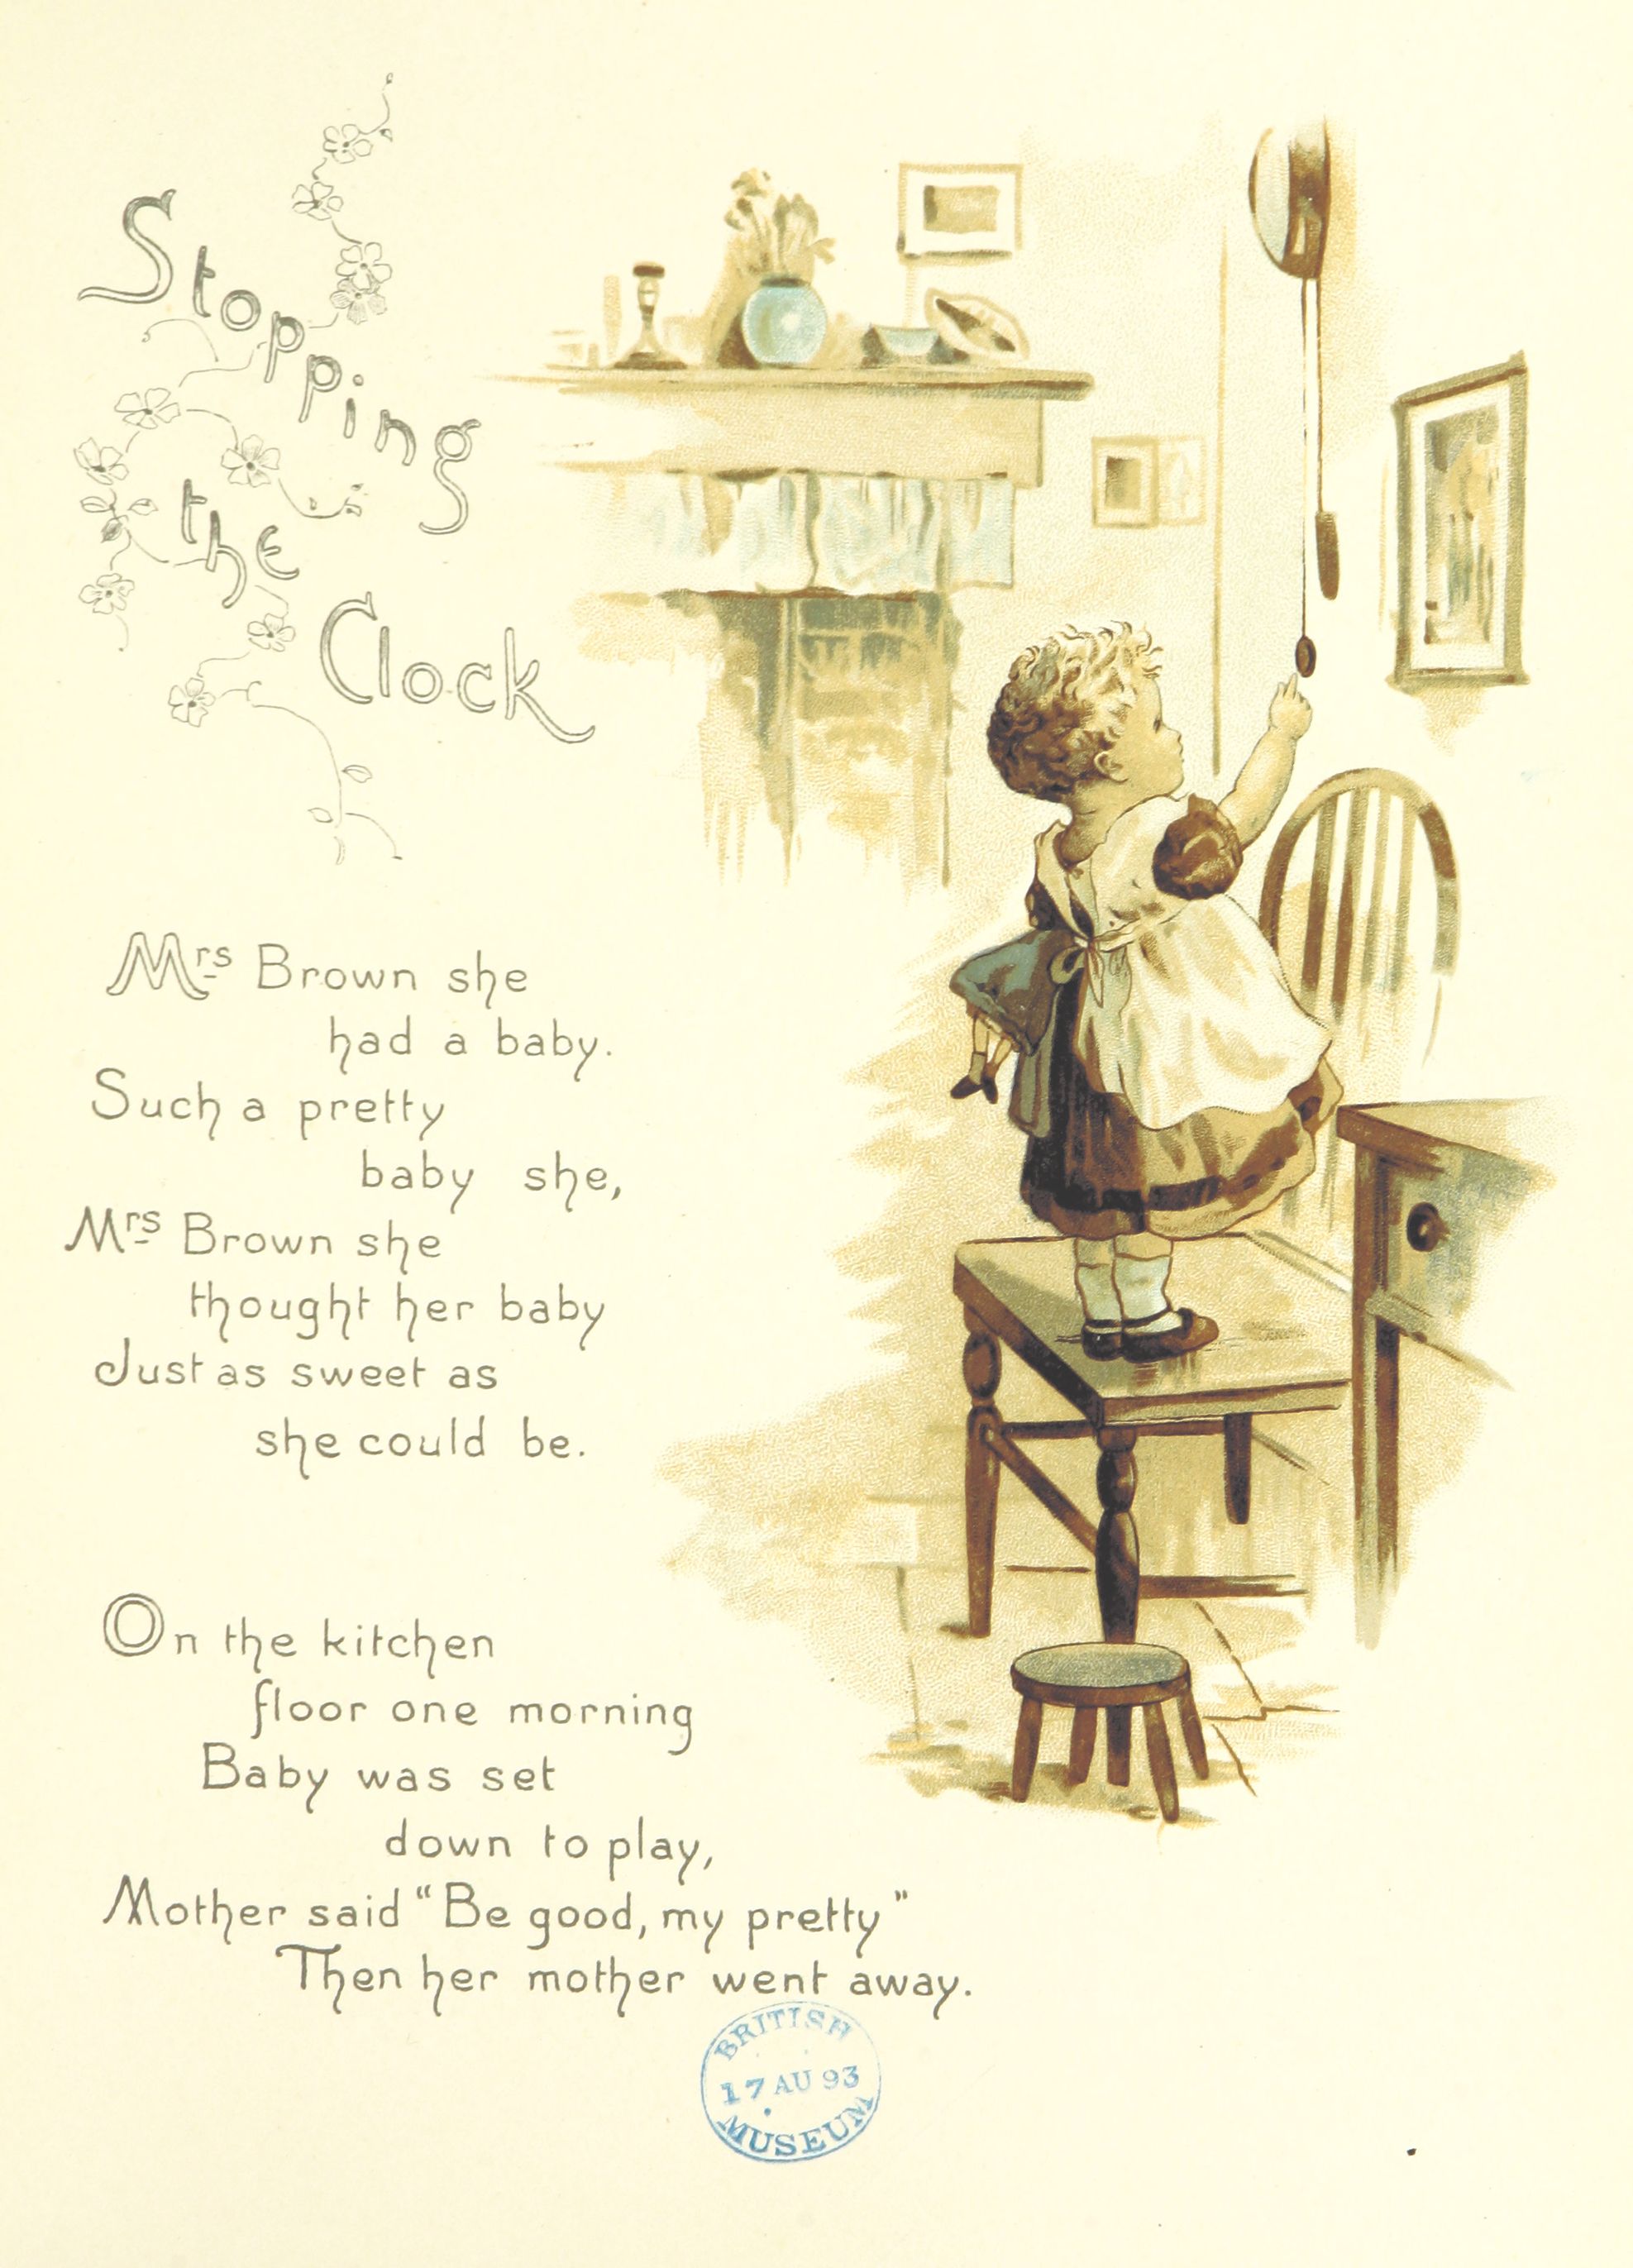 Stopping
the
Clock
Mrs Brown she
had a baby.
Such a pretty
baby she,
Mrs Brown she
thought her baby
Just as sweet as
she could be.
On the kitchen
floor one morning
Baby was set
down to play,
Mother said "Be good, my pretty"
Then her mother went away.
BRITISH
17 AU 93
MUSEUM